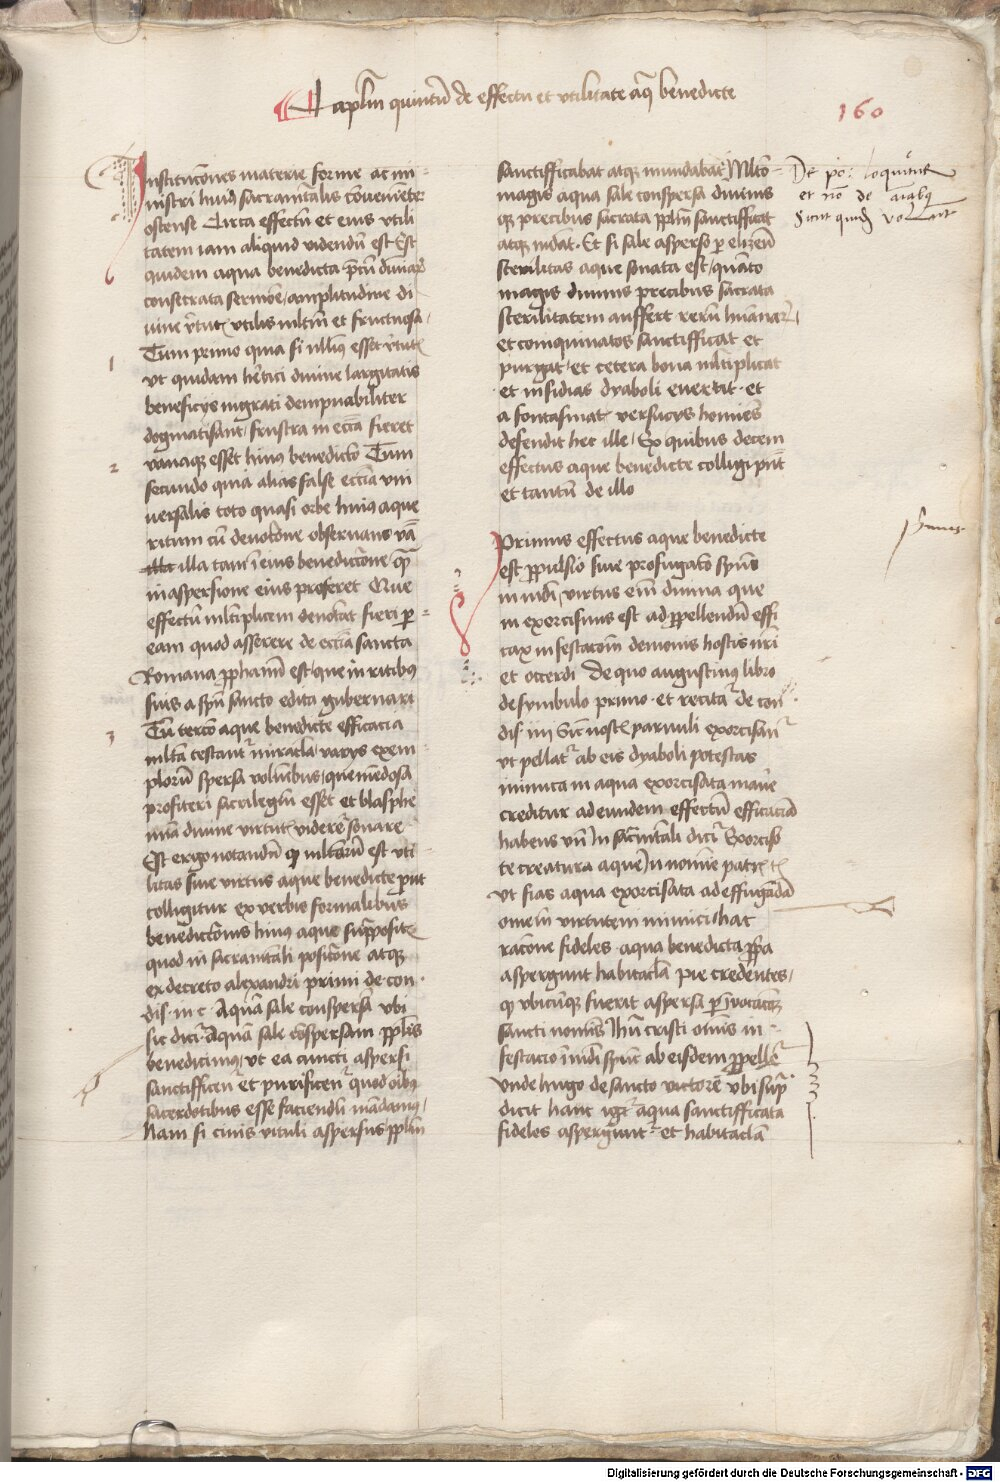 Caplm quintu de effectu et vtilitate aq benedicte
160
Institucones materie forme ac mi
nistri huiꝰ sacramentalis conuenieter
ostense Circa effectu et eius vtili
tatem iam aliquid videndu est Est
quidem aqua benedicta
consecrata sermone amplitudine di
uine vtut vtilis mltm et fructuosa
1 Tum primo quia si nllius esset vtut
vt quidam hetici diuine largitatis
beneficijs ingrati dempnabiliter
dogmatisant frustra in eccia fieret
2 vanaqꝫ esset huiꝰ benedicto Tum
secundo quia alias false eccia vni
uersalis toto quasi orbe huiꝰ aque
ritum cu deuotone obseruans
illa tam i eius benedictone qm
in aspersione eius proferet Que
effectu mltiplicem denotat fieri per
eam quod asserere de eccia sancta
Romana pphanu est que in ritibus
suis a spu sancto edita gubernari
3 Tu tercio aque benedicte efficacia
mlta testant miracla varijs exem
ploru spersa voluibus que medosa
profiteri sacrilegiu esset et blasphe
mia diuine virtut videre sonare
Est ergo notandu qp mltaru est vti
litas siue virtus aque benedicte put
colligitur ex verbis formalibus
benedictonis huiꝰ aque supposite
quod in sacramtali positone atqꝫ
ex decreto alexandri primi de con
dis iii c Aqua sale conspersa vbi
sic dici Aqua sale conspersam pplis
benedicimus vt ea cuncti aspersi
sanctificent et purificent quod oibus
sacerdotibus esse faciendu madamus
Nam si cinis vituli aspersus pplm
sanctifficabat atqꝫ mundabat Mlto
magis aqua sale conspersa diuinis
qꝫ precibus sacrata pplm sanctifficat
atqꝫ mdat Et si sale asperso p elizeu
sterilitas aque sanata est quato
magis diuinis precibus sacrata
sterilitatem auffert reru humanar
et coinquinatos sanctifficat et
purgat et cetera bona mltiplicat
et insidias dyaboli euertit et
a fantasmat versucijs homies
defendit hec ille Ex quibus decem
effectus aque benedicte colligi pnt
et tantu de illo
De po loquitur
et no de aiabꝰ
Sicut quidam volunt
Primus effectus aque benedicte
est ppulsio siue profugato spus
inmdi virtus em diuina que
in exorcismis est ad ppellendu effi
cax infestatoni demonis hostis nri
et occurri de quo augustinus libro
de symbolo primo et recitat de con
dis iiii Sic nost paruuli exorcisant
vt pellat ab eis dyaboli potestas
inimica in aqua exorcisata maue
creditur ad eundem effectu efficacia
habens vn in sacmtali dici Exorciso
te creatura aque in nomie patris
vt fias aqua exorcisata ad effugada
omem virtutem inimici hac
racone fideles aqua benedicta ppa
aspergunt habitacla pie credentes
qp vbicuqꝫ fuerit aspersa p inuocacoem
sancti nomis ihu cristi omis in
festacio inmdi spus ab eisdem ppelle
Vnde hugo de sancto victore vbi sup
dicit hanc igr aqua sanctifficata
fideles aspergunt et habitacla
Primus
Digitalisierung gefördert durch die Deutsche Forschungsgemeinschaft - DFG